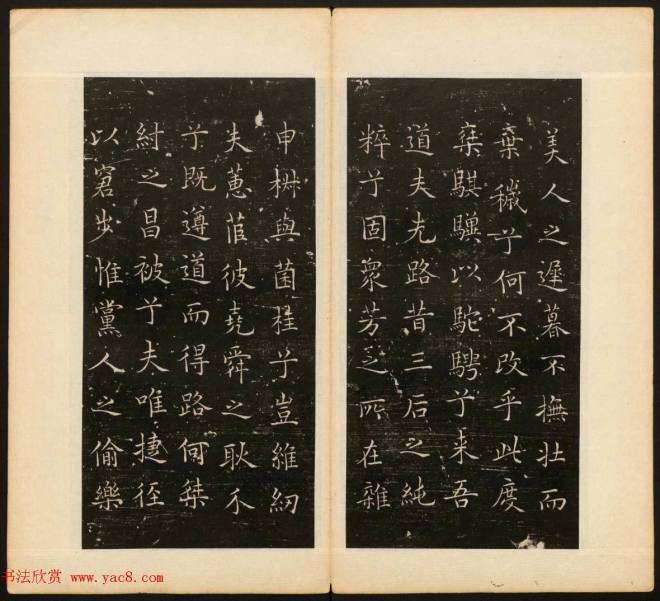 美人之遲暮不撫壯而
棄穢兮何不改乎此度
椉騏驥以駝騁兮来吾
道夫先路昔三后之純
粹兮固衆芳之所在雜
申椒與菌桂兮豈維紉
夫蕙茝彼堯舜之耿介
兮既遵道而得路何桀
紂之昌被兮夫唯捷徑
以窘步惟黨人之偷樂
书法欣赏 www.yac8.com